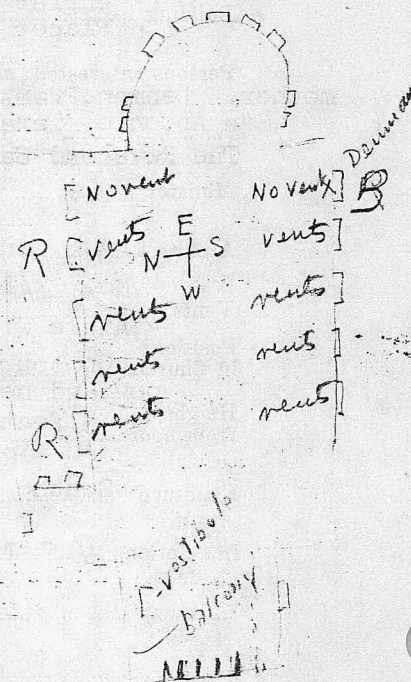 Novent Novent X B
E
R vents vents
N S
W
vents vents
vents vents
R vents vents
vestibule
Balcony